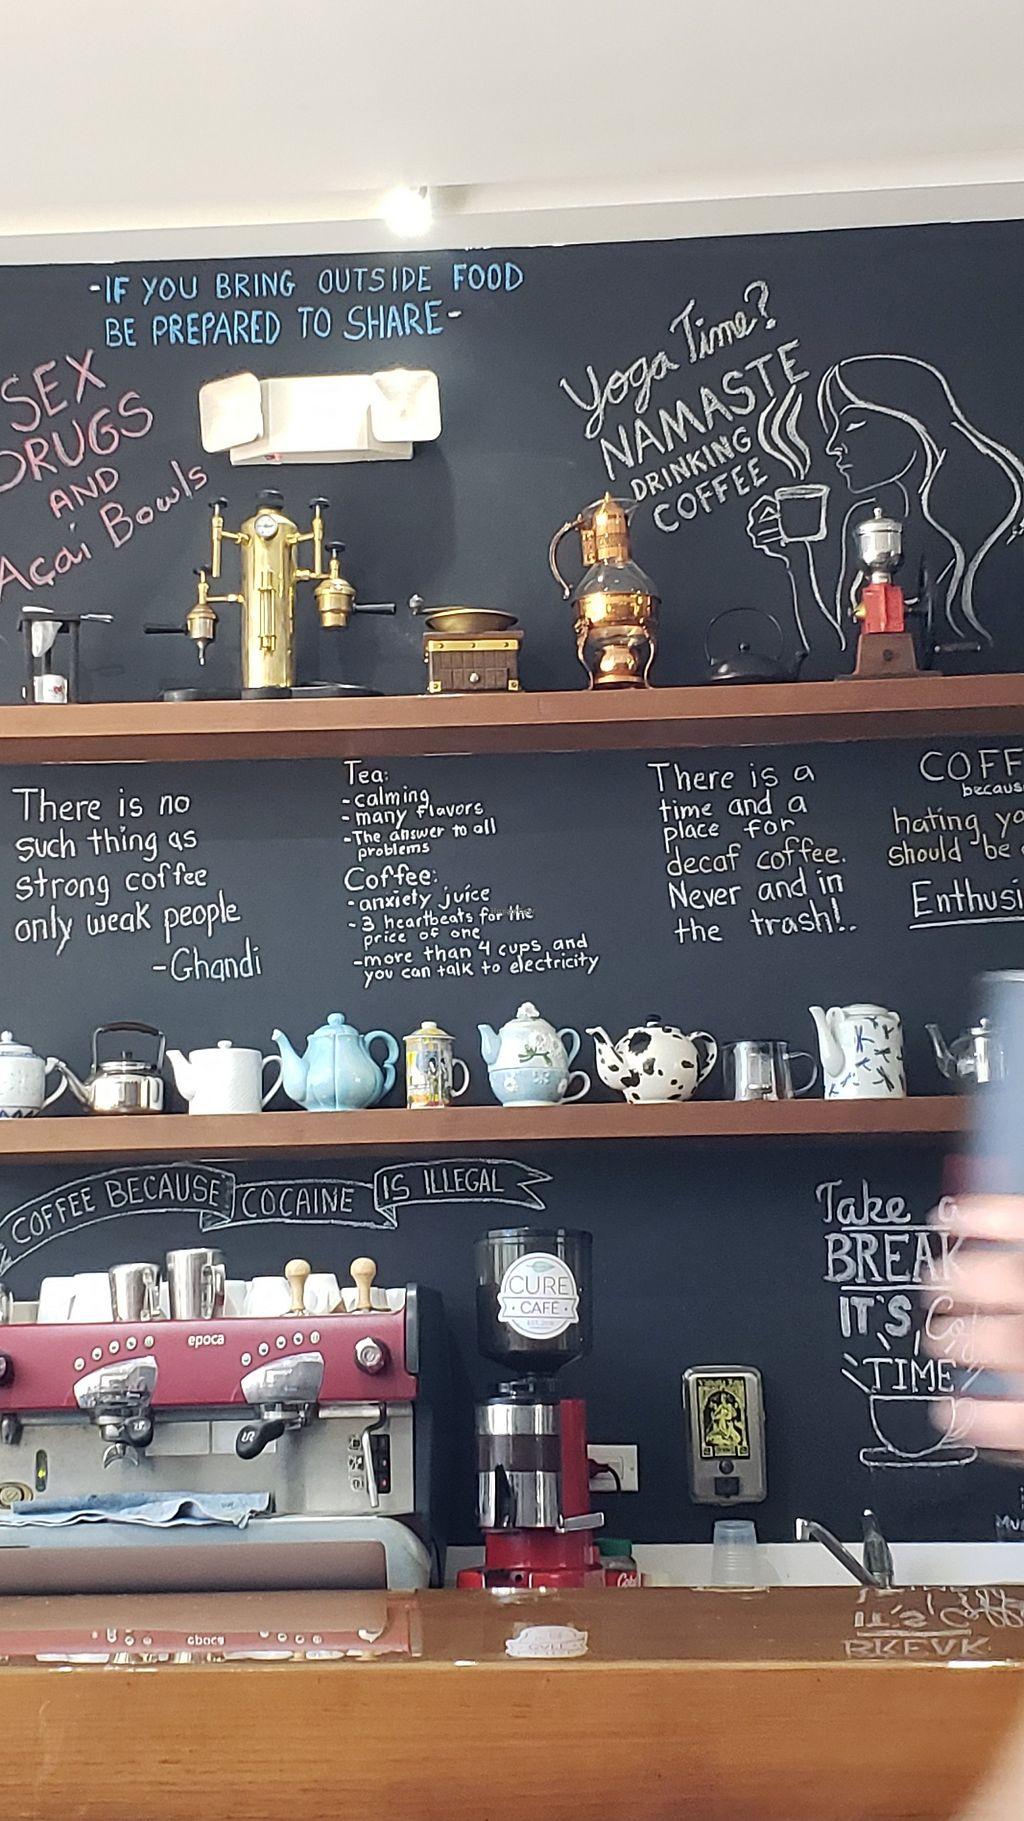 -IF YOU BRING OUTSIDE FOOD
BE PREPARED TO SHARE-
SEX
DRUGS
AND
Açai Bowls
Yoga Time?
NAMASTE
DRINKING
COFFEE
There is no
such thing as
strong coffee
only weak people
-Ghandi
Tea:
-calming
-many flavors
-The answer to all
problems
Coffee:
-anxiety juice
-3 heartbeats for the
price of one
-more than 4 cups and
you can talk to electricity
There is a
time and a
place for
decaf coffee.
Never and in
the trash!..
COFF
becaus
hating yo
should be
Enthusi
COFFEE BECAUSE COCAINE IS ILLEGAL
epoca
CURE
CAFÉ
Take a
BREAK
IT'S
TIME